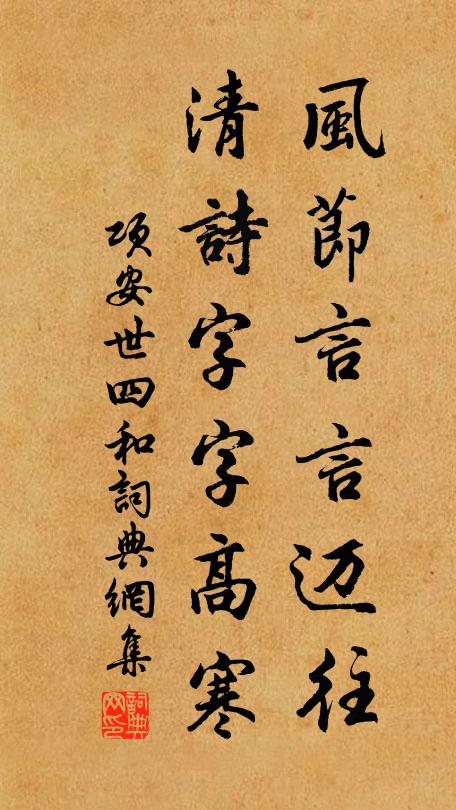 風節言言迈往
清詩字字高寒
项安世四和詞典網集
詞典网印